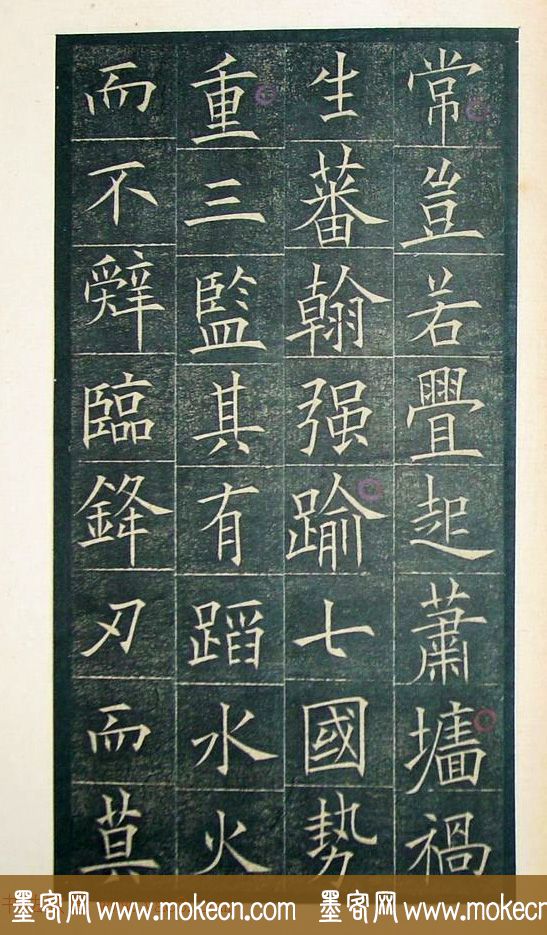 常豈若疊起蕭墻禍
生蕃翰强踰七國勢
重三監其有蹈水火
而不辤臨鋒刃而莫
墨客网 www.mokecn.com 墨客网 www.mokecn.com